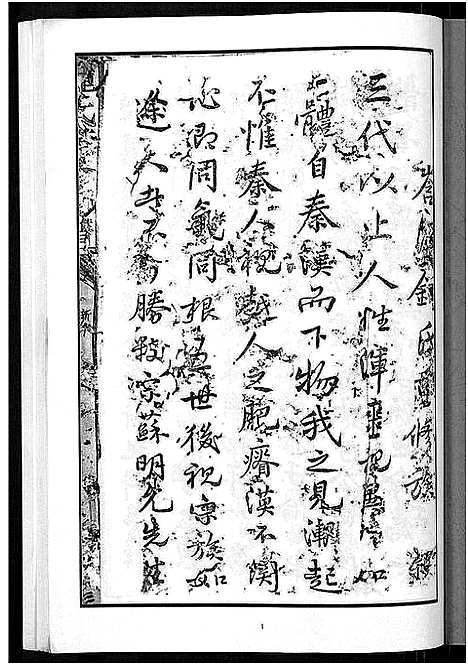 氏重修族譜
三代以上人性渾噩視萬物如
一體自秦漢而下物我之見漸起
不惟秦人視越人之肥瘠漠不關
心即同氣同根歷世後視宗族如
途人者不勝
宗蘇明允先生
1